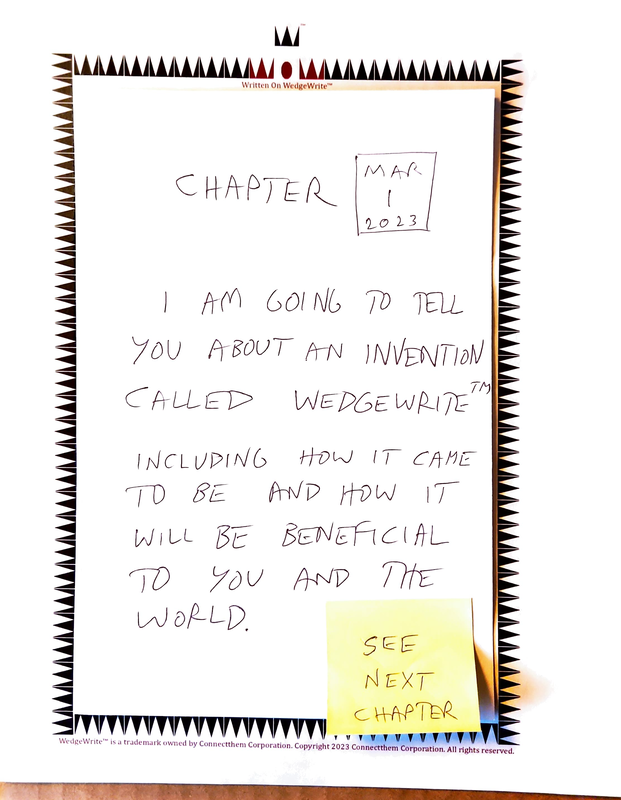 ™
Written On WedgeWrite™
CHAPTER
MAR
1
2023
I AM GOING TO TELL
YOU ABOUT AN INVENTION
CALLED WEDGEWRITE™
INCLUDING HOW IT CAME
TO BE AND HOW IT
WILL BE BENEFICIAL
TO YOU AND THE
WORLD.
SEE
NEXT
CHAPTER
WedgeWrite™ is a trademark owned by Connectthem Corporation. Copyright 2023 Connectthem Corporation. All rights reserved.